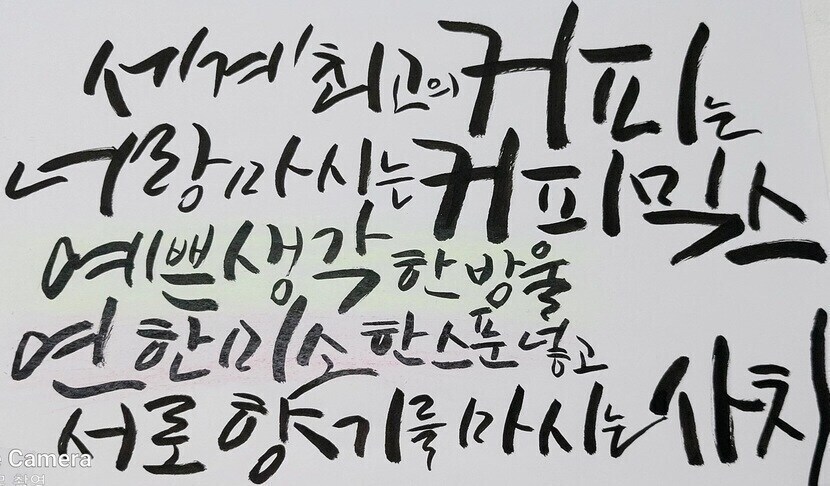 세계 최고의 커피는
너랑 마시는 커피믹스
예쁜생각 한방울
연한미소 한스푼 넣고
서로 향기를 마시는 사치
Camera